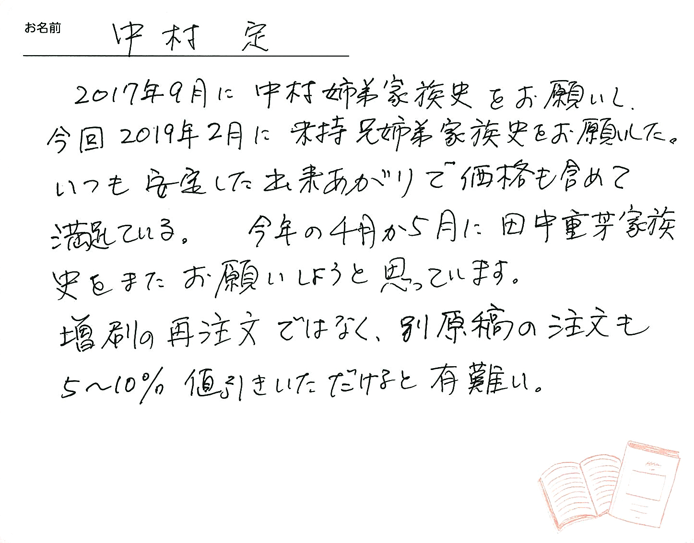 お名前 中村 定
2017年9月に 中村姉弟家族史をお願いし、
今回2019年2月に 米持兄姉弟家族史をお願いした。
いつも 安定した出来あがりで価格も含めて
満足ている。 今年の4月か5月に 田中重芳家族
史をまた お願いしようと思っています。
増刷の再注文ではなく、別原稿の注文も
5〜10% 値引きいただけると有難い。